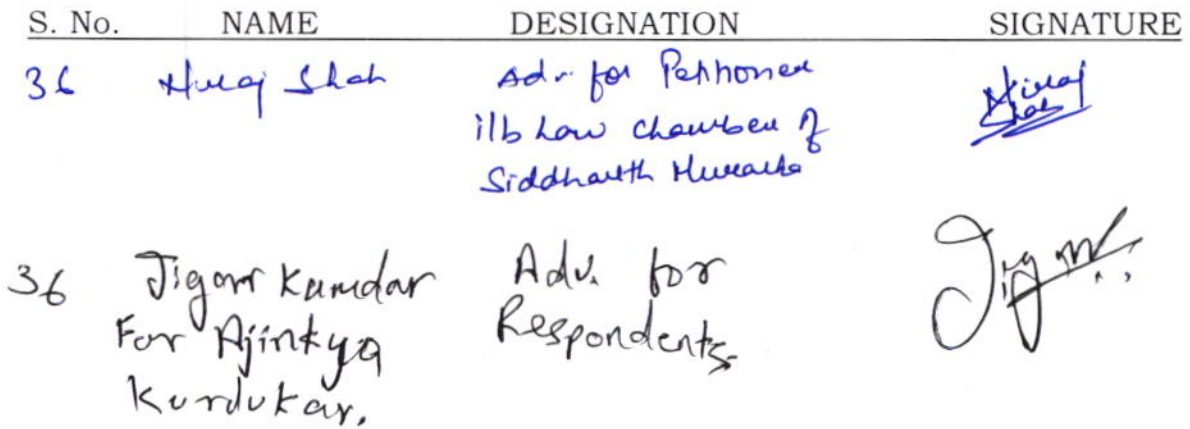 S. No. NAME DESIGNATION SIGNATURE
36 Niraj Shah Adv. for Petitioner
i/b Law Chamber of
Siddharth Murarka
Niraj
Shah
36 Jigar Kamdar Adv. for
For Ajinkya Respondents.
Kurdukar.
Jigar